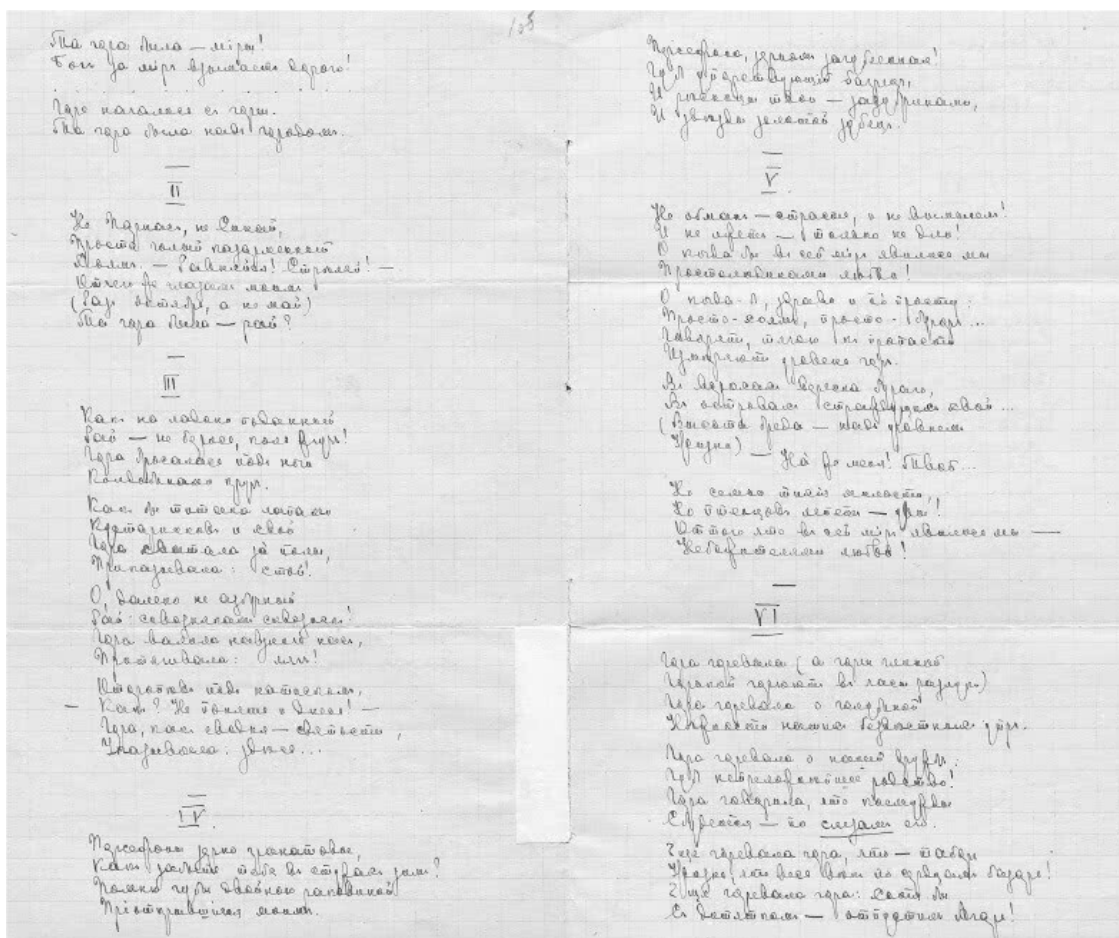 105
Та гора была — мiры!
Богъ за мiръ взымаетъ дорого!
. . . . . . . . . . . . . . . .
Горе началось съ горы.
Та гора была надъ городомъ.
II
Не Парнасъ, не Синай,
Просто голый казарменный
Холмъ. — Равняйся! Стрѣляй! —
Отчего же глазамъ моимъ
(Разъ октябрь, а не май)
Та гора была — рай?
III
Какъ на ладони поданный
Рай — не берись, коль жгучъ!
Гора бросалась подъ ноги
Колдобинами кручъ.
Какъ бы титана лапами
Кустарниковъ и хвой
Гора хватала за полы,
Приказывала: стой!
О, далеко не азбучный
Рай: сквознякамъ сквознякъ!
Гора валила навзничь насъ,
Притягивала: лягъ!
Оторопѣвъ подъ натискомъ,
— Какъ? Не понять и днесь! —
Гора, какъ сводня — святости,
Указывала: здѣсь...
IV
Персефоны зерно гранатовое,
Какъ забыть тебя въ стужахъ зимъ?
Помню губы двойною раковиной
Прiоткрывшiяся моимъ.
Персефона, зерномъ загубленная!
Губъ упорствующiй багрецъ,
И рѣсницы твои — зазубринами,
И звѣзды золотой зубецъ.
V
Не обманъ — страсть, и не вымыселъ!
И не лжетъ — только не дли!
О когда бы въ сей мiръ явились мы
Простолюдинами любви!
О когда-бъ, здраво и по просту:
Просто-холмъ, просто-бугоръ...
Говорятъ, тягою къ пропасти
Измѣряютъ уровень горъ.
Въ ворохахъ вереска бураго,
Въ островахъ страждущихъ хвой...
(Высота бреда — надъ уровнемъ
Жизни) — На́ же меня! Твой...
Но семьи тихiя милости,
Но птенцовъ лепетъ — увы!
Оттого что въ сей мiръ явились мы —
Небожителями любви!
VI
Гора горевала (а горы глиной
Горькой горюютъ въ часы разлукъ)
Гора горевала о голубиной
Нѣжности нашихъ безвѣстныхъ утръ.
Гора горевала о нашей дружбѣ:
Губъ непреложнѣйшее родство!
Гора говорила, что коемужды
Сбудется — по слезамъ его.
Еще горевала гора, что — таборъ
Жизнь, что весь вѣкъ по сердцамъ базарь!
Еще горевала гора: хотя бы
Съ дитяткомъ — отпустилъ Агарь!